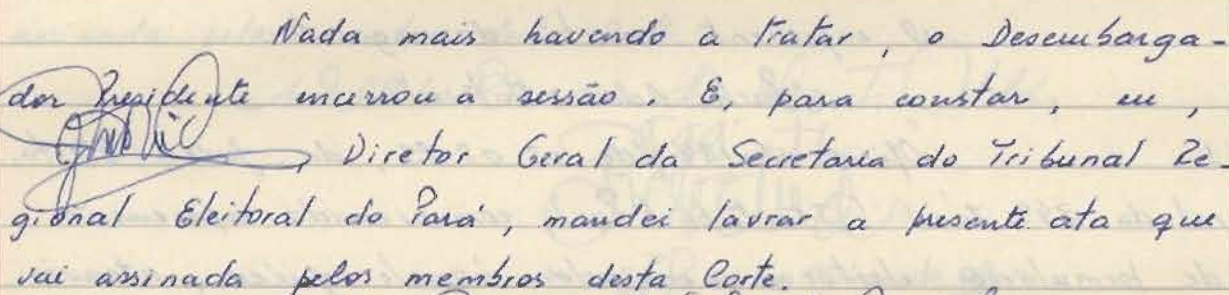 Nada mais havendo a tratar, o Desembarga-
dor Presidente encerrou a sessão. E, para constar, eu,
, Diretor Geral da Secretaria do Tribunal Re-
gional Eleitoral do Pará, mandei lavrar a presente ata que
vai assinada pelos membros desta Corte.